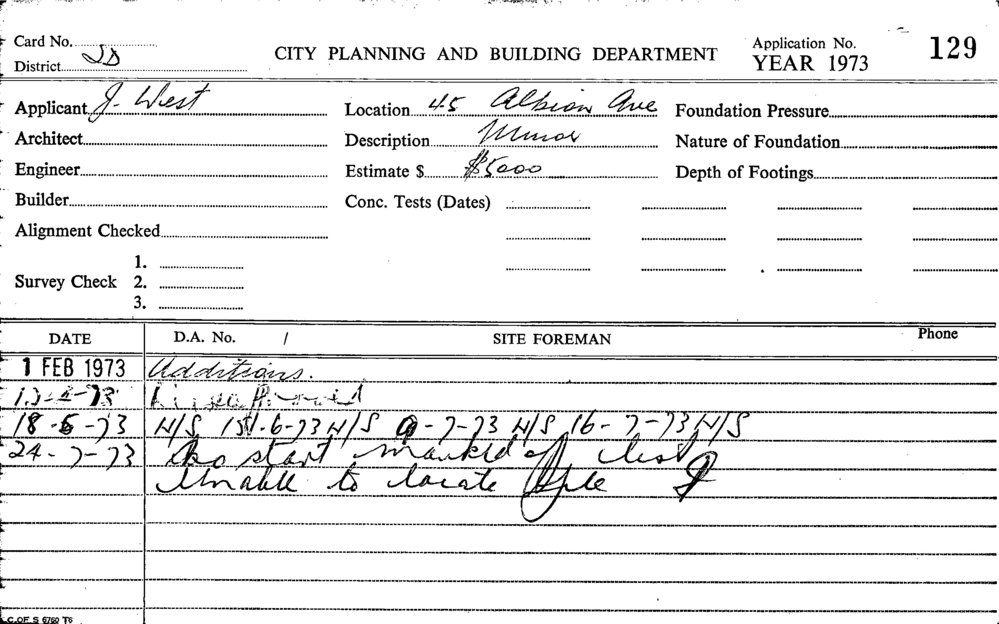 Card No.
CITY PLANNING AND BUILDING DEPARTMENT
Application No. 129
District
YEAR 1973
Applicant J. West Location 45 Albion Ave Foundation Pressure
Architect Description Minor Nature of Foundation
Engineer Estimate $ $5000 Depth of Footings
Builder Conc. Tests (Dates)
Alignment Checked
1.
Survey Check 2.
3.
DATE D.A. No. / SITE FOREMAN Phone
1 FEB 1973 Additions.
18-6-73 N/S N/S -7-73 N/S 16-7-73 N/S
24-7-73 No start marked of
Unable to locate file
C.OF.S 6760 T6